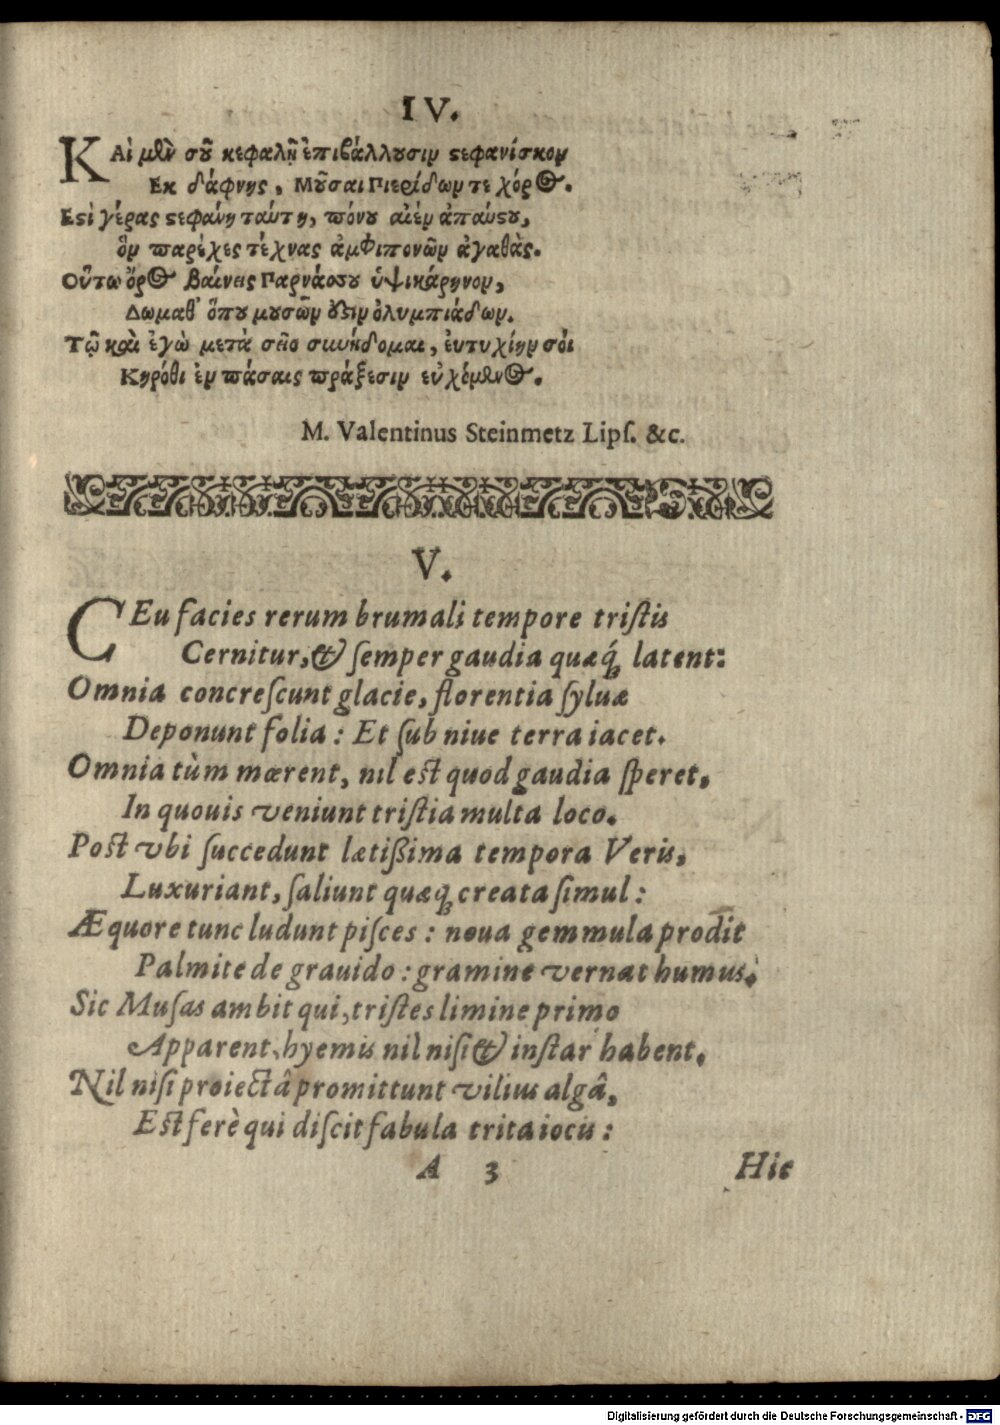 IV.
ΚΑὶ μὲν σοῦ κεφαλῇ ἐπιβάλλουσιν ϛεφανίσκον
Εκ δάφνης, Μοῦσαι Πιερίδων τε χόρος.
Εϛὶ γέρας ϛεφάνη ταύτη, πόνου αἰὲν ἀπαύϛου,
ὃν παρέχες τέχνας ἀμφιπονῶν ἀγαθὰς.
Οὕτω ὄρος βαίνεις Παρνάσσου ὑψικάρηνον,
Δωμαθ' ὅπου μουσῶν οὖϛιν ὀλυμπιάδων.
Τῷ καὶ ἐγὼ μετὰ σεῖο συνήδομαι, ἐυτυχίην σόι
Κηρόθι ἐν πάσαις πράξεσιν εὐχόμενος.
M. Valentinus Steinmetz Lipſ. &c.
V.
CEu facies rerum brumali tempore triſtis
Cernitur, & ſemper gaudia quæq́; latent:
Omnia concreſcunt glacie, florentia ſyluæ
Deponunt folia: Et ſub niue terra iacet.
Omnia tùm mœrent, nil eſt quod gaudia ſperet,
In quouis veniunt triſtia multa loco.
Poſt vbi ſuccedunt lætißima tempora Veris,
Luxuriant, ſaliunt quæq; creata ſimul:
Æquore tunc ludunt piſces: noua gemmula prodit
Palmite de grauido: gramine vernat humus.
Sic Muſas ambit qui, triſtes limine primo
Apparent, hyemis nil niſi & inſtar habent.
Nil niſi proiectâ promittunt vilius algâ,
Eſt ferè qui diſcit fabula trita iocis:
A 3 Hic
Digitalisierung gefördert durch die Deutsche Forschungsgemeinschaft - DFG